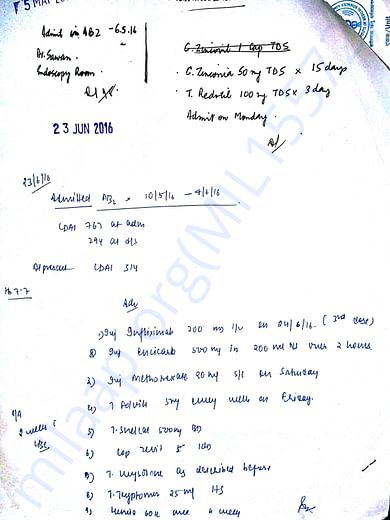 5 MAY
Admit in AB2 - 6.5.16
Dr. Sawan
Endoscopy Room.
C. Zinconia 50 mg TDS × 15 days
T. Redotil 100 mg TDS × 3 day
Admit on Monday.
23 JUN 2016
23/6/16
Admitted AB2, 10/5/16 - 4/6/16
CDAI 767 at adm
294 at d/s
At present CDAI 314
Hb 7.7
Adv
1) Inj Infliximab 200 mg i/v on 04/6/16. (3rd dose)
2) Inj Encicarb 500 mg in 200 ml NS over 2 hours
3) Inj Methotrexate 20 mg s/c on Saturday
4) T Folvite 5mg every week on Friday.
5) T. Shelcal 500mg BD
6) Cap 5
7) T. as described before
8) T. Tryptomer 25 mg HS
9) 60k once a week
R/A
2 weeks
milaap.org(MIL155